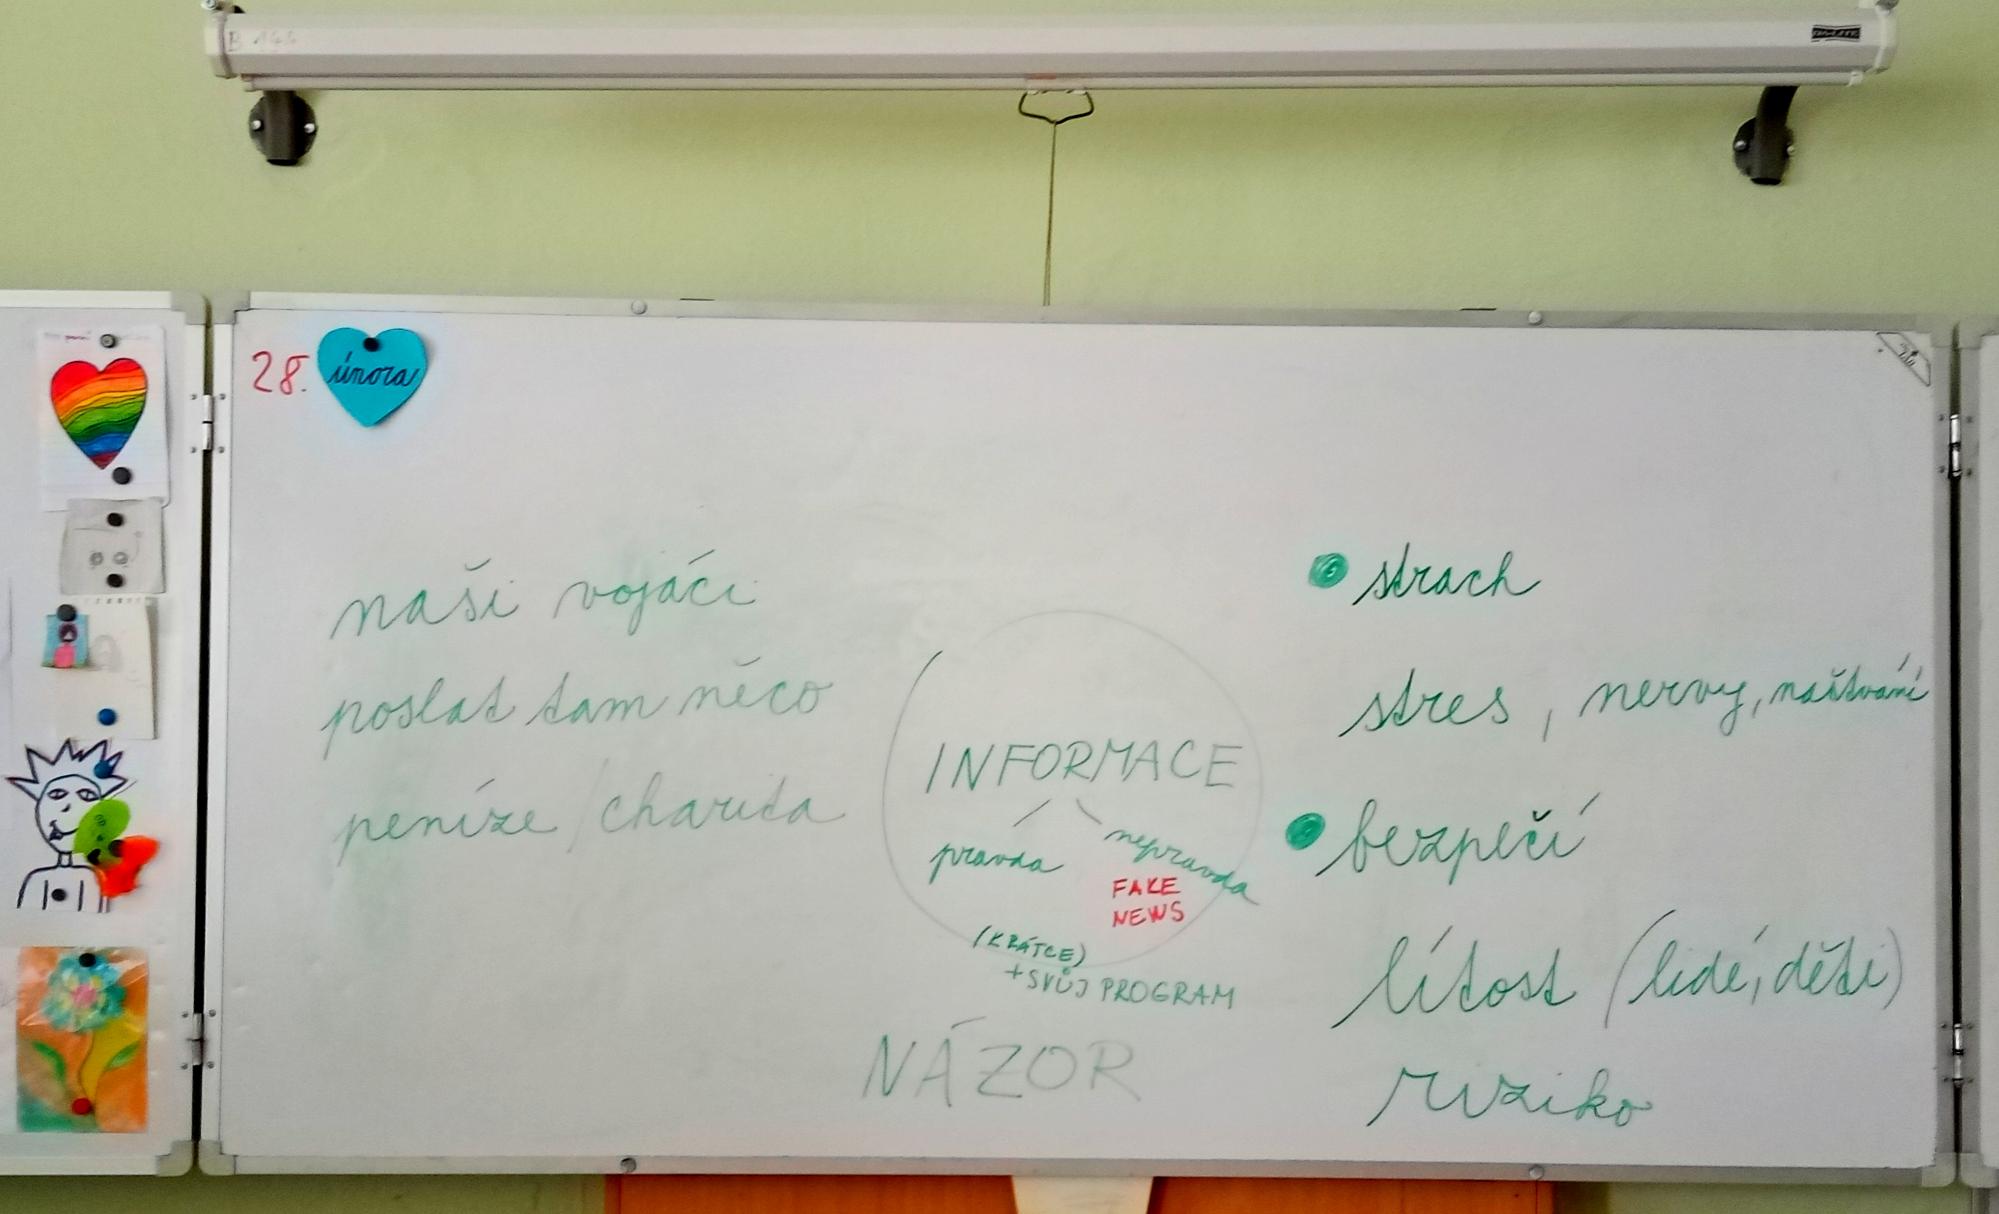 28. února
naši vojáci
poslat tam něco
peníze / charita
INFORMACE
pravda
nepravda
FAKE
NEWS
(KRÁTCE)
+ SVŮJ PROGRAM
NÁZOR
strach
stres, nervy, naštvání
bezpečí
lítost (lidé, děti)
riziko